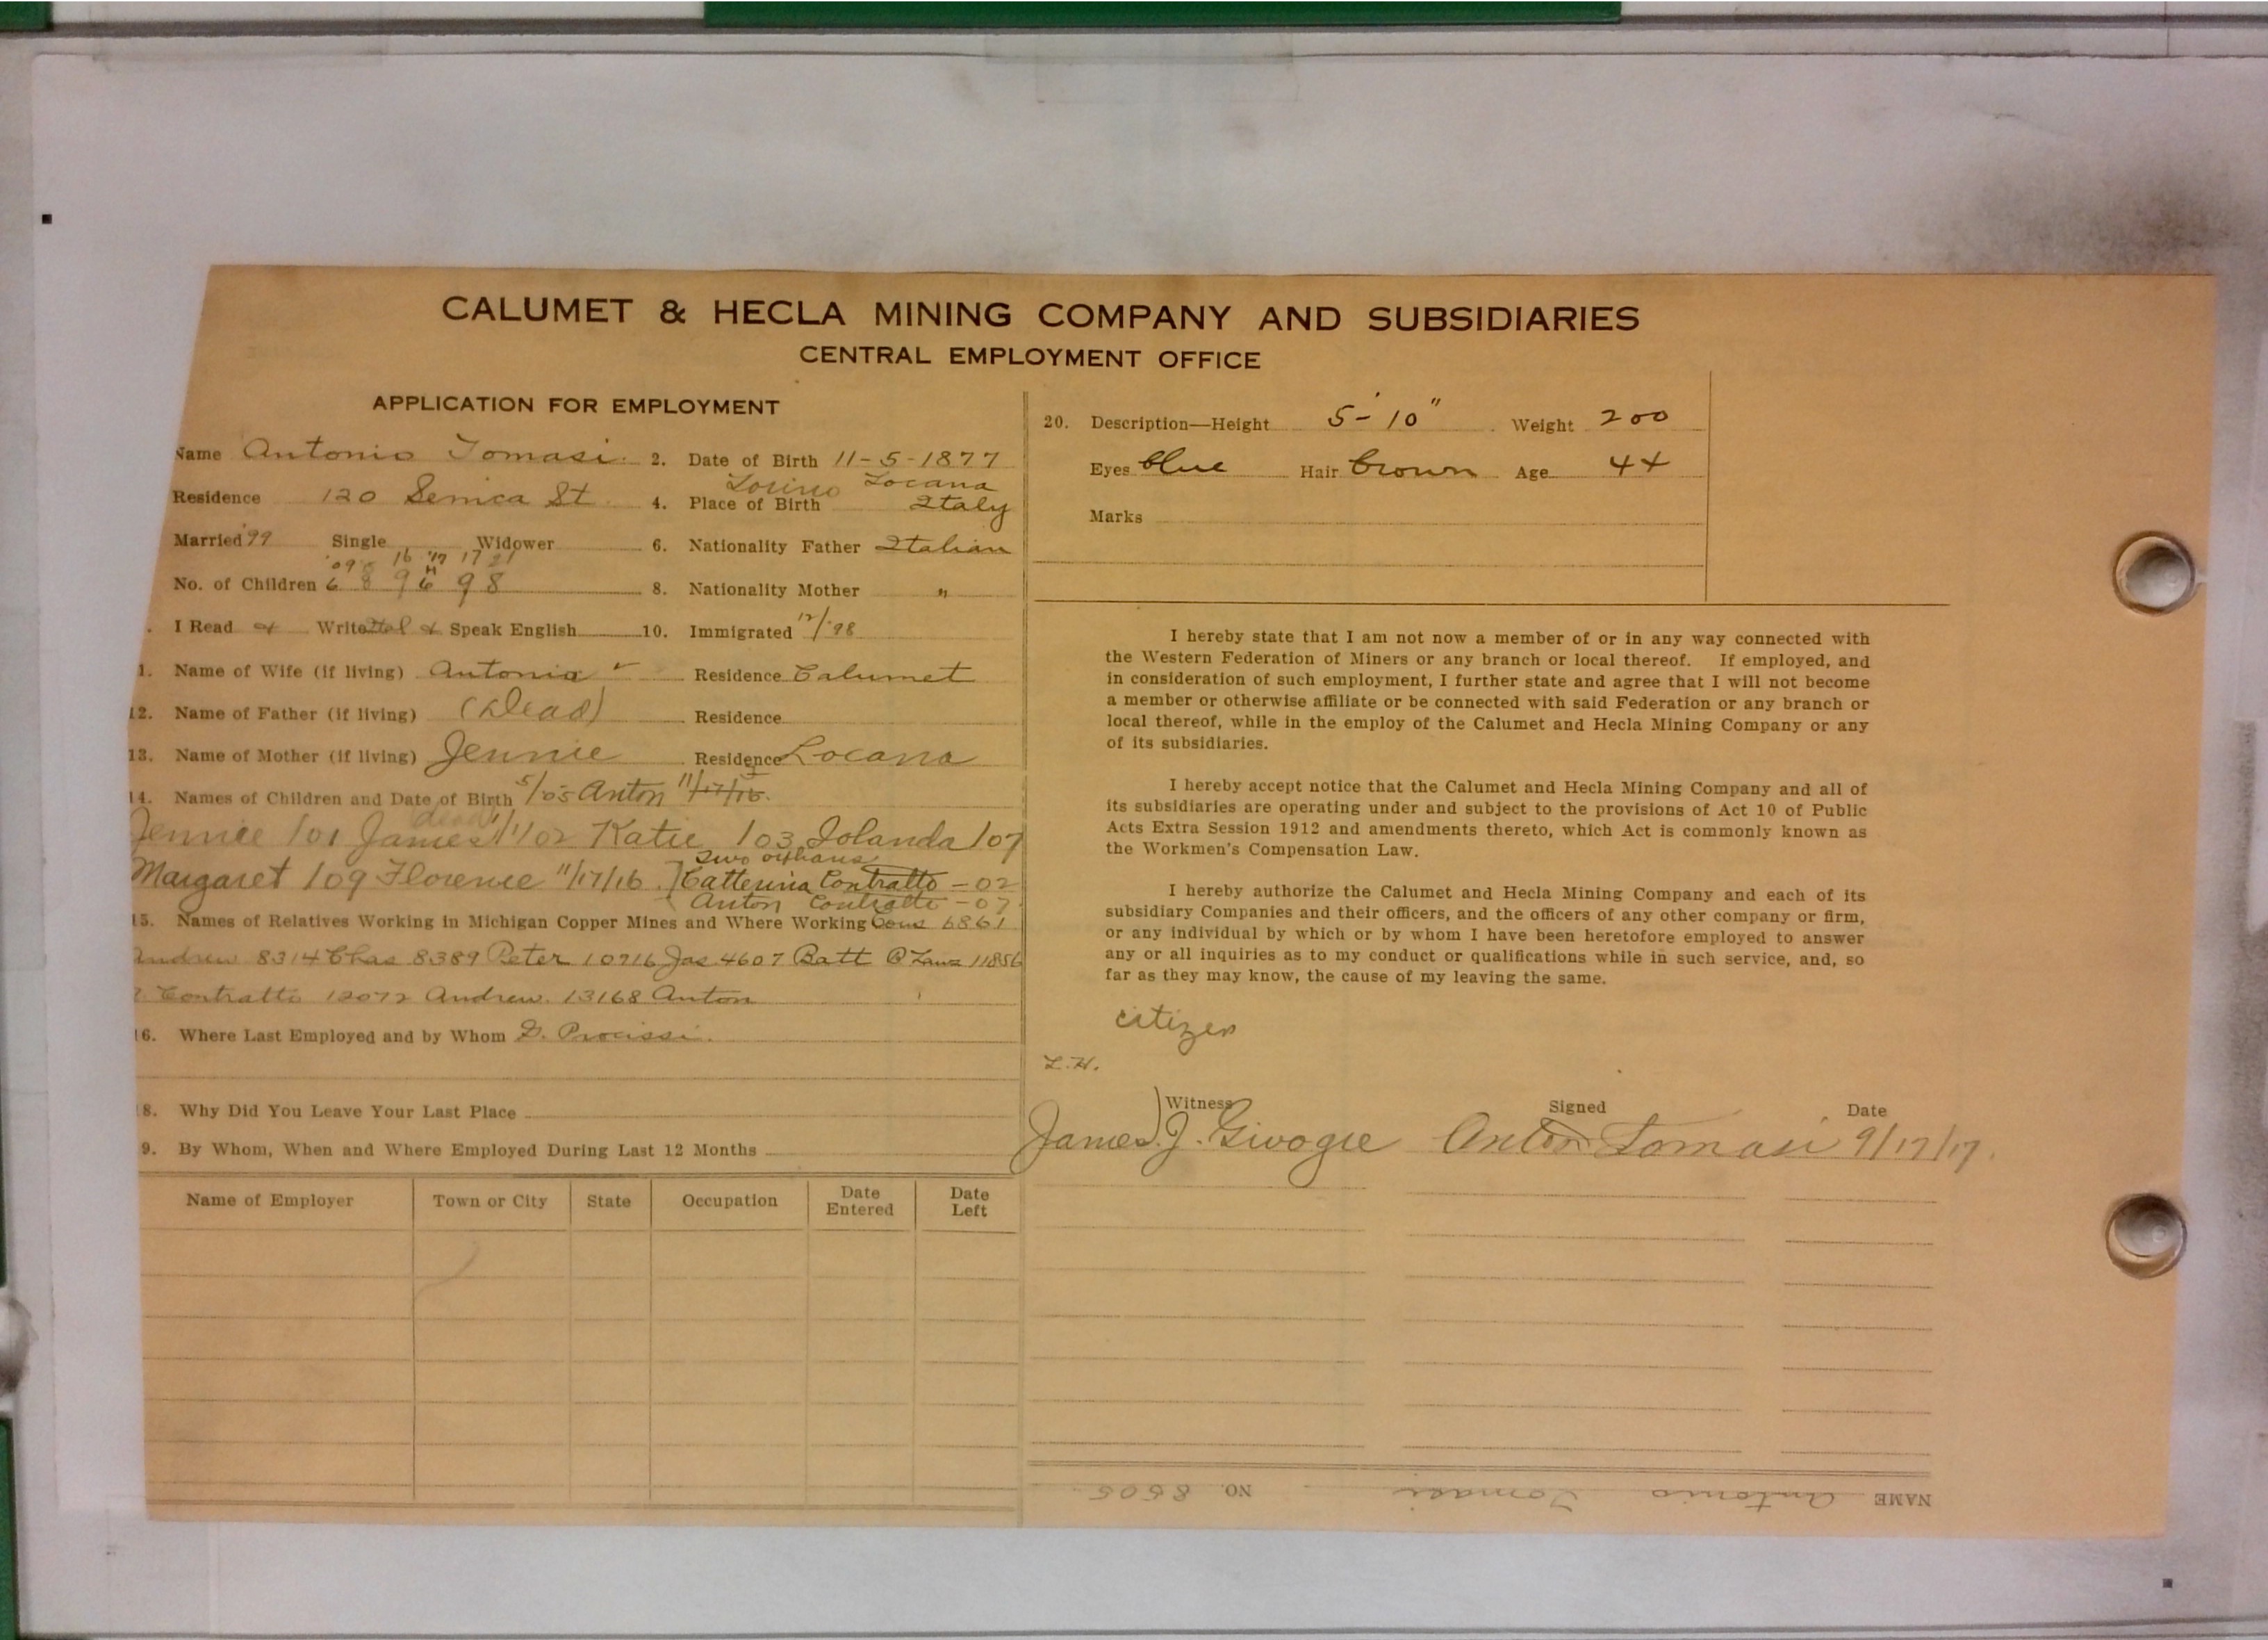 CALUMET & HECLA MINING COMPANY AND SUBSIDIARIES
CENTRAL EMPLOYMENT OFFICE
APPLICATION FOR EMPLOYMENT
Name Antonio Tomasi 2. Date of Birth 11-5-1877
Residence 120 Senica St 4. Place of Birth Torino Locana Italy
Married '99 Single Widower 6. Nationality Father Italian
'09 16 '17 17 21
No. of Children 6 8 9 6 9 8 8. Nationality Mother "
I Read & Write Ital & Speak English 10. Immigrated 12/'98
1. Name of Wife (if living) Antonia Residence Calumet
12. Name of Father (if living) (Dead) Residence
13. Name of Mother (if living) Jennie Residence Locana
14. Names of Children and Date of Birth 5/05 Anton 11/17/15.
dead
Jennie /01 James 1/1/02 Katie /03 Iolanda /07
two orphans
Margaret /09 Florence 11/17/16. Catterina Contratto - 02
Anton Contratto - 07
15. Names of Relatives Working in Michigan Copper Mines and Where Working Cous 6861
Andrew 8314 Chas 8389 Peter 10716 Jas 4607 Batt 11856
Contratto 12072 Andrew. 13168 Anton
16. Where Last Employed and by Whom G. Procissi.
8. Why Did You Leave Your Last Place
9. By Whom, When and Where Employed During Last 12 Months
Name of Employer Town or City State Occupation Date Entered Date Left
20. Description—Height 5'-10" Weight 200
Eyes blue Hair brown Age 44
Marks
I hereby state that I am not now a member of or in any way connected with
the Western Federation of Miners or any branch or local thereof. If employed, and
in consideration of such employment, I further state and agree that I will not become
a member or otherwise affiliate or be connected with said Federation or any branch or
local thereof, while in the employ of the Calumet and Hecla Mining Company or any
of its subsidiaries.
I hereby accept notice that the Calumet and Hecla Mining Company and all of
its subsidiaries are operating under and subject to the provisions of Act 10 of Public
Acts Extra Session 1912 and amendments thereto, which Act is commonly known as
the Workmen's Compensation Law.
I hereby authorize the Calumet and Hecla Mining Company and each of its
subsidiary Companies and their officers, and the officers of any other company or firm,
or any individual by which or by whom I have been heretofore employed to answer
any or all inquiries as to my conduct or qualifications while in such service, and, so
far as they may know, the cause of my leaving the same.
citizen
L.H.
Witness Signed Date
James J. Givogre Anton Tomasi 9/17/17.
NAME Antonio Tomasi NO. 8505